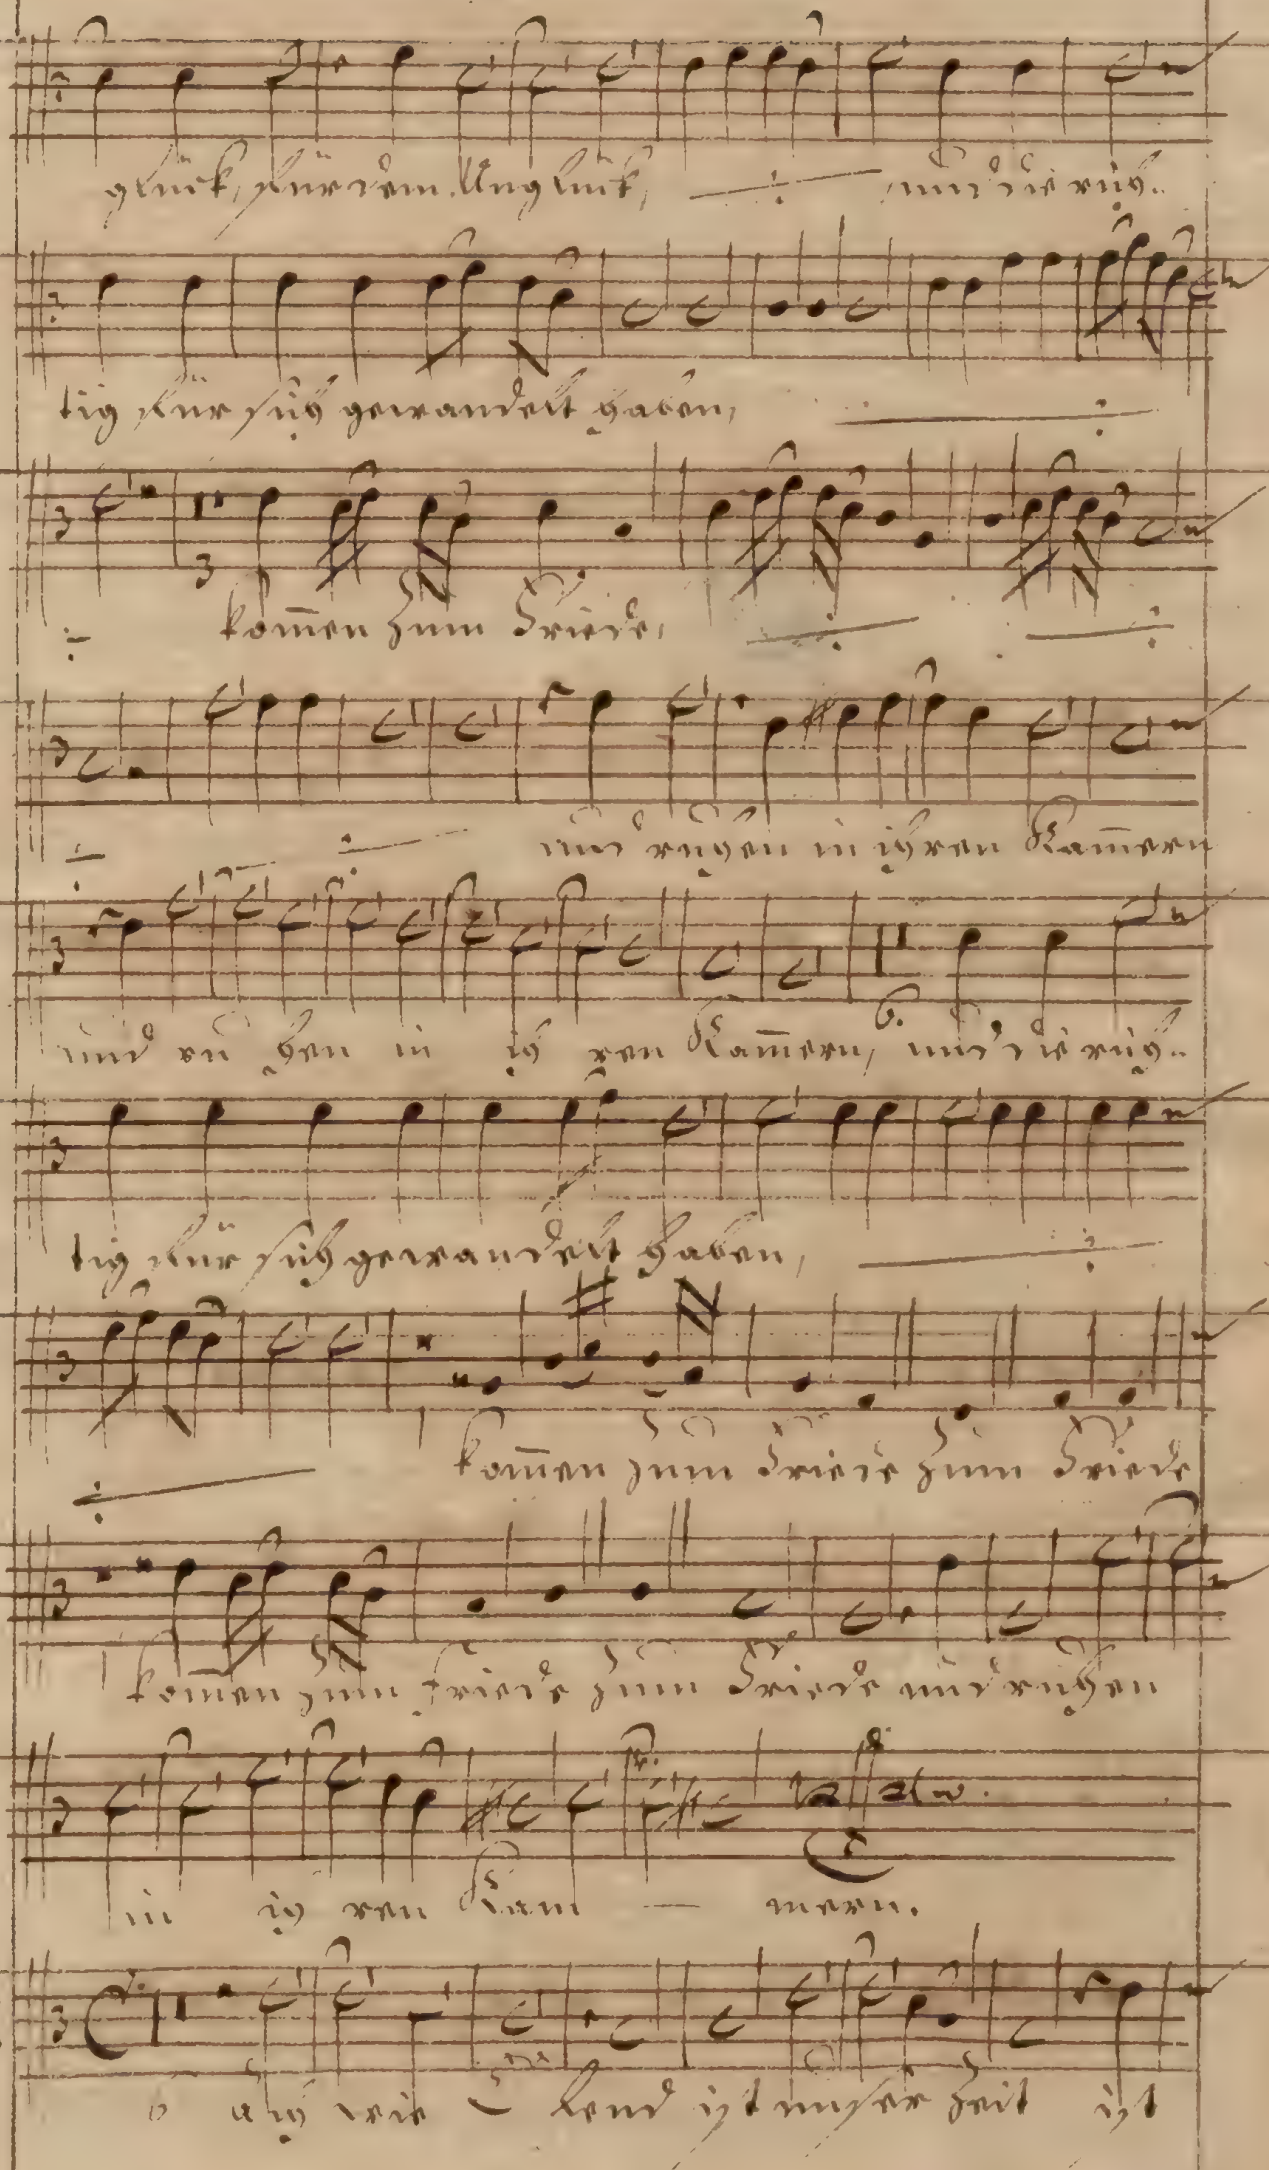 glück, für dem Unglück, ÷ und die rich-
tig für sich gewandelt haben, ÷
÷ kom̄en zum Friede, ÷ ÷
÷ ÷ und ruhen in ihren Kam̄ern
und ru hen in ih ren Kam̄ern, und die rich-
tig für sich gewandelt haben, ÷
÷ kom̄en zum Friede zum Friede
kom̄en zum Friede zum Friede und ruhen
in ih ren Kam — mern.
Ach wie Elend ist unser Zeit ist